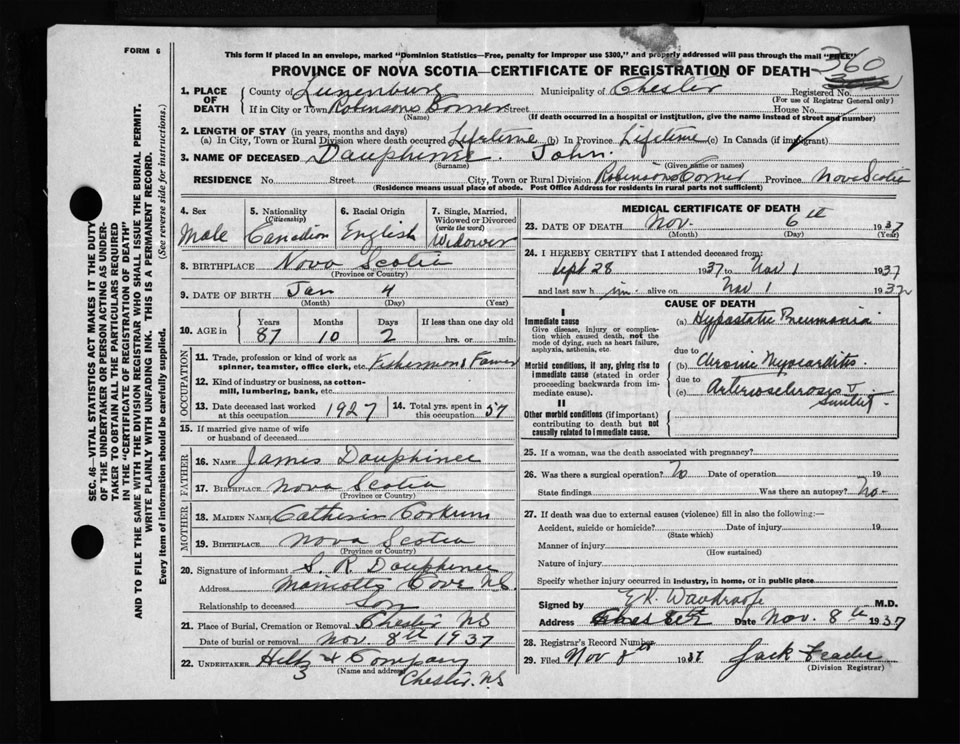 FORM 6
This form if placed in an envelope, marked "Dominion Statistics—Free, penalty for improper use $300," and properly addressed will pass through the mail "FREE"
PROVINCE OF NOVA SCOTIA—CERTIFICATE OF REGISTRATION OF DEATH
360
1. PLACE OF DEATH
County of Lunenburg Municipality of Chester Registered No.
(For use of Registrar General only)
If in City or Town Robinsons Corner Street House No.
(Name) (If death occurred in a hospital or institution, give the name instead of street and number)
2. LENGTH OF STAY (in years, months and days)
(a) In City, Town or Rural Division where death occurred Lifetime (b) In Province Lifetime (c) In Canada (if immigrant)
3. NAME OF DECEASED Dauphinee. John.
(Surname) (Given name or names)
RESIDENCE No. Street City, Town or Rural Division Robinsons Corner Province Nova Scotia
(Residence means usual place of abode. Post Office Address for residents in rural parts not sufficient)
SEC. 46—VITAL STATISTICS ACT MAKES IT THE DUTY
OF THE UNDERTAKER OR PERSON ACTING AS UNDER-
TAKER TO OBTAIN ALL THE PARTICULARS REQUIRED
IN THE "CERTIFICATE OF REGISTRATION OF DEATH"
AND TO FILE THE SAME WITH THE DIVISION REGISTRAR WHO SHALL ISSUE THE BURIAL PERMIT.
WRITE PLAINLY WITH UNFADING INK. THIS IS A PERMANENT RECORD.
Every item of information should be carefully supplied. (See reverse side for instructions.)
4. Sex
Male
5. Nationality
(Citizenship)
Canadian
6. Racial Origin
English
7. Single, Married, Widowed or Divorced
(write the word)
Widower
8. BIRTHPLACE Nova Scotia
(Province or Country)
9. DATE OF BIRTH Jan 4
(Month) (Day) (Year)
10. AGE in
Years Months Days If less than one day old
87 10 2 hrs. or min.
OCCUPATION
11. Trade, profession or kind of work as spinner, teamster, office clerk, etc.
12. Kind of industry or business, as cotton-mill, lumbering, bank, etc.
13. Date deceased last worked at this occupation 1927
14. Total yrs. spent in this occupation 57
15. If married give name of wife or husband of deceased
FATHER
16. NAME James Dauphinee
17. Birthplace Nova Scotia
(Province or Country)
MOTHER
18. MAIDEN NAME Catherin Corkum
19. BIRTHPLACE Nova Scotia
(Province or Country)
20. Signature of informant S. R. Dauphinee
Address Marriotts Cove N.S.
Relationship to deceased Son
21. Place of Burial, Cremation or Removal Chester NS
Date of burial or removal Nov. 8th 1937
22. UNDERTAKER & Company
3 (Name and address)
Chester, N.S
MEDICAL CERTIFICATE OF DEATH
23. DATE OF DEATH Nov. 6th 1937
(Month) (Day) (Year)
24. I HEREBY CERTIFY that I attended deceased from:
Sept 28 1937 to Nov 1 1937
and last saw h im alive on Nov 1 1937
CAUSE OF DEATH
I
Immediate cause
Give disease, injury or complication which caused death, not the mode of dying, such as heart failure, asphyxia, asthenia, etc.
(a) Hypostatic Pneumonia
due to
Morbid conditions, if any, giving rise to immediate cause (stated in order proceeding backwards from immediate cause).
(b) Chronic Myocarditis
due to
(c) Arteriosclerosis
II
Other morbid conditions (if important) contributing to death but not causally related to immediate cause.
25. If a woman, was the death associated with pregnancy?
26. Was there a surgical operation? No Date of operation 19
State findings Was there an autopsy? No
27. If death was due to external causes (violence) fill in also the following:—
Accident, suicide or homicide? Date of injury 19
(State which)
Manner of injury
(How sustained)
Nature of injury
Specify whether injury occurred in industry, in home, or in public place
Signed by M.D.
Address Chester Date Nov. 8th 1937
28. Registrar's Record Number
29. Filed Nov 8th 1937 Jack
(Division Registrar)